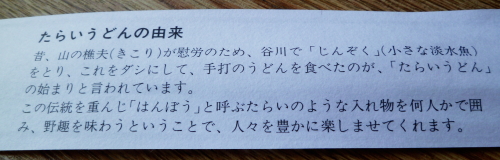 たらいうどんの由来
昔、山の樵夫(きこり)が慰労のため、谷川で「じんぞく」(小さな淡水魚)
をとり、これをダシにして、手打のうどんを食べたのが、「たらいうどん」
の始まりと言われています。
この伝統を重んじ「はんぼう」と呼ぶたらいのような入れ物を何人かで囲
み、野趣を味わうということで、人々を豊かに楽しませてくれます。